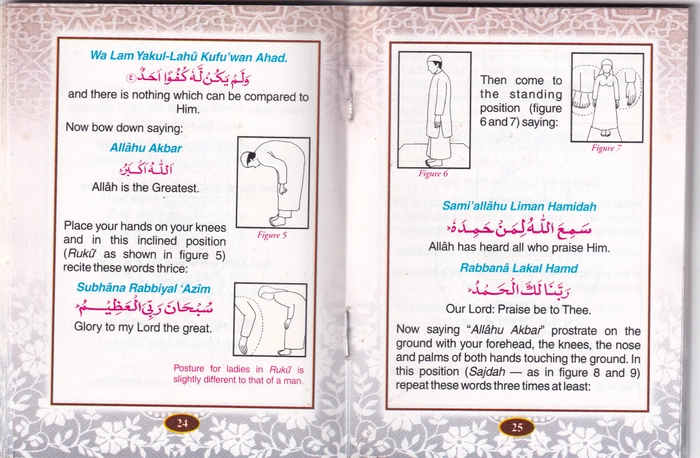 Wa Lam Yakul-Lahû Kufu'wan Ahad.
وَلَمْ يَكُنْ لَّهٗ كُفُوًا اَحَدٌ ﴿٤﴾
and there is nothing which can be compared to
Him.
Now bow down saying:
Allâhu Akbar
اَللّٰهُ اَكْبَرُ
Allâh is the Greatest.
Figure 5
Place your hands on your knees
and in this inclined position
(Rukû' as shown in figure 5)
recite these words thrice:
Subhâna Rabbiyal 'Azîm
سُبْحَانَ رَبِّىَ الْعَظِيْمِ
Glory to my Lord the great.
Posture for ladies in Rukû' is
slightly different to that of a man.
24
Figure 6
Then come to
the standing
position (figure
6 and 7) saying:
Figure 7
Sami'allâhu Liman Hamidah
سَمِعَ اللّٰهُ لِمَنْ حَمِدَهٗ
Allâh has heard all who praise Him.
Rabbanâ Lakal Hamd
رَبَّنَا لَكَ الْحَمْدُ
Our Lord: Praise be to Thee.
Now saying "Allâhu Akbar" prostrate on the
ground with your forehead, the knees, the nose
and palms of both hands touching the ground. In
this position (Sajdah — as in figure 8 and 9)
repeat these words three times at least:
25